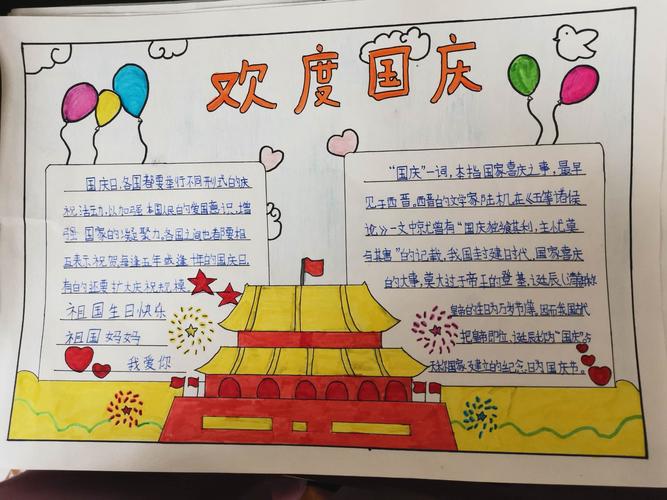 欢度国庆
国庆日,各国都要举行不同形式的庆
祝活动,以加强本国人民的爱国意识,增
强国家的凝聚力。各国之间也都要相
互表示祝贺。每逢五年或逢十年的国庆日,
有的还要扩大庆祝规模
祖国生日快乐
祖国妈妈
我爱你
“国庆”一词,本指国家喜庆之事,最早
见于西晋。西晋的文学家陆机在《五等诸侯
论》一文中就曾有“国庆独飨其利,主忧莫
与其害”的记载、我国封建时代、国家喜庆
的大事,莫大过于帝王的登基、诞辰(清朝
皇帝的生日为万岁节等,因而我国古代
把皇帝即位、诞辰称为“国庆”。今
天称国家建立的纪念日为国庆节。